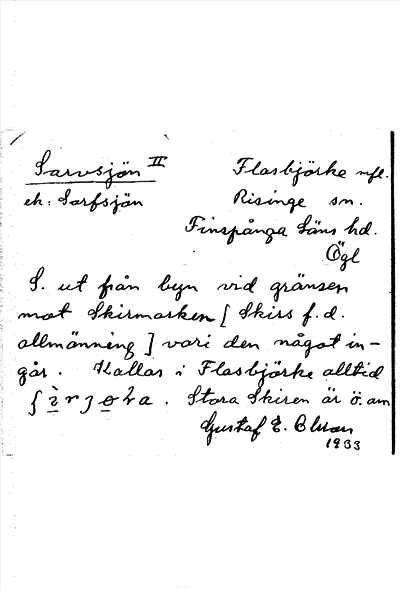 Sarvsjön II
Flasbjörke mfl.
ek: Sarfsjön
Risinge sn.
Finspånga läns hd.
Ögl
S. ut från byn vid gränsen
mot Skirmarken [Skirs f.d.
allmänning] vari den något in-
går. Kallas i Flasbjörke alltid
Stora Skiren är ö. om
Gustaf E. Olson
1933